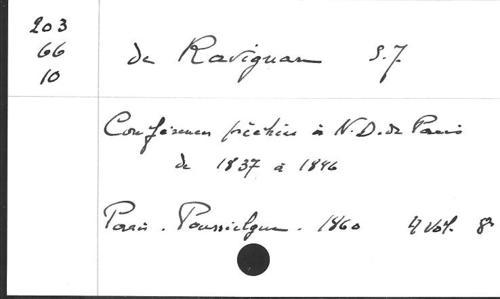 203
66
10
de Ravignan S.J
Conférences prêchées à N.D. de Paris
de 1837 à 1846
Paris. Poussielgue. 1860 4 vol. 8°